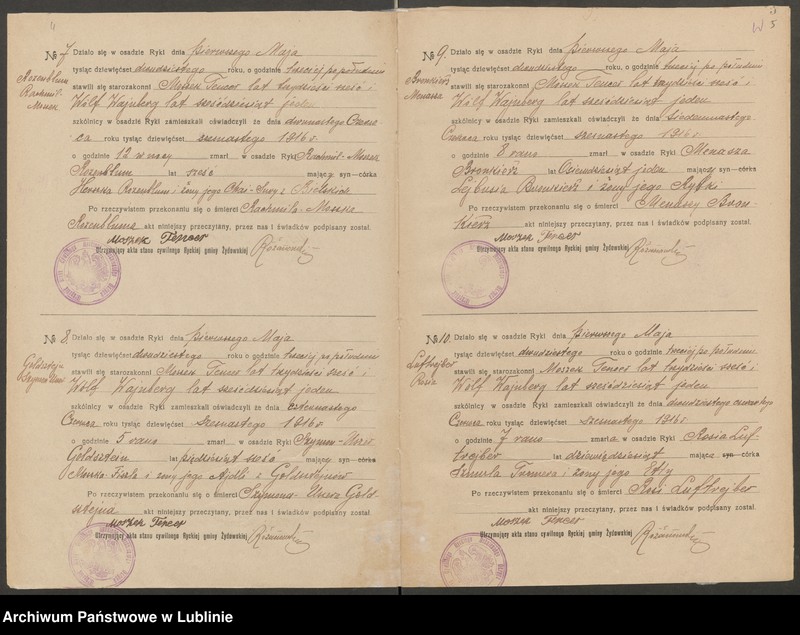 № 7 Działo się w osadzie Ryki dnia pierwszego Maja
tysiąc dziewięćset dwudziestego roku, o godzinie trzeciej po południu
Rozenblum
Rachmil-
Mosek
stawili się starozakonni Moszek Tencer lat trzydzieści sześć i
Wólf Wajnberg lat sześćdziesiąt jeden
szkólnicy w osadzie Ryki zamieszkali oświadczyli że dnia dwunastego Czerw-
ca roku tysiąc dziewięćset szesnastego 1916 r.
o godzinie 12 w nocy zmarł w osadzie Ryki Rachmil-Mosek
Rozenblum lat sześć mający syn córka
Rozenblum i żony jego
Po rzeczywistem przekonaniu się o śmierci Rachmila-Moska
Rozenbluma akt niniejszy przeczytany, przez nas i świadków podpisany został.
Moszek Tencer
Utrzymujący akta stanu cywilnego Ryckiej gminy Żydowskiej
№ 8. Działo się w osadzie Ryki dnia pierwszego Maja
tysiąc dziewięćset dwudziestego roku o godzinie trzeciej po południu
Goldsztejn
Szymon Uszer
stawili się starozakonni Moszek Tencer lat trzydzieści sześć i
Wólf Wajnberg lat sześćdziesiąt jeden
szkólnicy w osadzie Ryki zamieszkali oświadczyli że dnia czternastego
Czerwca roku tysiąc dziewięćset szesnastego 1916 r.
o godzinie 5 rano zmarł w osadzie Ryki Szymon-Uszer
Goldsztejn lat pięćdziesiąt sześć mający syn córka
Moszka-Fiszla i żony jego Ajdli z
Po rzeczywistem przekonaniu się o śmierci Szymona-Uszera Gold-
sztejna akt niniejszy przeczytany, przez nas i świadków podpisany został.
Moszek Tencer
Utrzymujący akta stanu cywilnego Ryckiej gminy Żydowskiej
5
№ 9. Działo się w osadzie Ryki dnia pierwszego Maja
tysiąc dziewięćset dwudziestego roku, o godzinie trzeciej po południu
Bronkierz
Menasza
stawili się starozakonni Moszek Tencer lat trzydzieści sześć i
Wólf Wajnberg lat sześćdziesiąt jeden
szkólnicy w osadzie Ryki zamieszkali oświadczyli że dnia siedemnastego
Czerwca roku tysiąc dziewięćset szesnastego 1916 r.
o godzinie 8 rano zmarł w osadzie Ryki Menasza
Bronkierz lat Osiemdziesiąt jeden mający syn córka
Lejbusia Bronkierz i żony jego Ryfki
Po rzeczywistem przekonaniu się o śmierci Menaszy Bron-
kierz akt niniejszy przeczytany, przez nas i świadków podpisany został.
Moszek Tencer
Utrzymujący akta stanu cywilnego Ryckiej gminy Żydowskiej
№ 10. Działo się w osadzie Ryki dnia pierwszego Maja
tysiąc dziewięćset dwudziestego roku, o godzinie trzeciej po południu
Luftrejber
Rosia
stawili się starozakonni Moszek Tencer lat trzydzieści sześć i
Wólf Wajnberg lat sześćdziesiąt jeden
szkólnicy w osadzie Ryki zamieszkali oświadczyli że dnia dwudziestego czwartego
Czerwca roku tysiąc dziewięćset szesnastego 1916 r.
o godzinie 7 rano zmarła w osadzie Ryki Rosia Luf-
trejber lat dziewięćdziesiąt mająca syn córka
Szmula i żony jego Etly
Po rzeczywistem przekonaniu się o śmierci Rosi Luftrejber
akt niniejszy przeczytany, przez nas i świadków podpisany został.
Moszek Tencer
Utrzymujący akta stanu cywilnego Ryckiej gminy Żydowskiej
Archiwum Państwowe w Lublinie